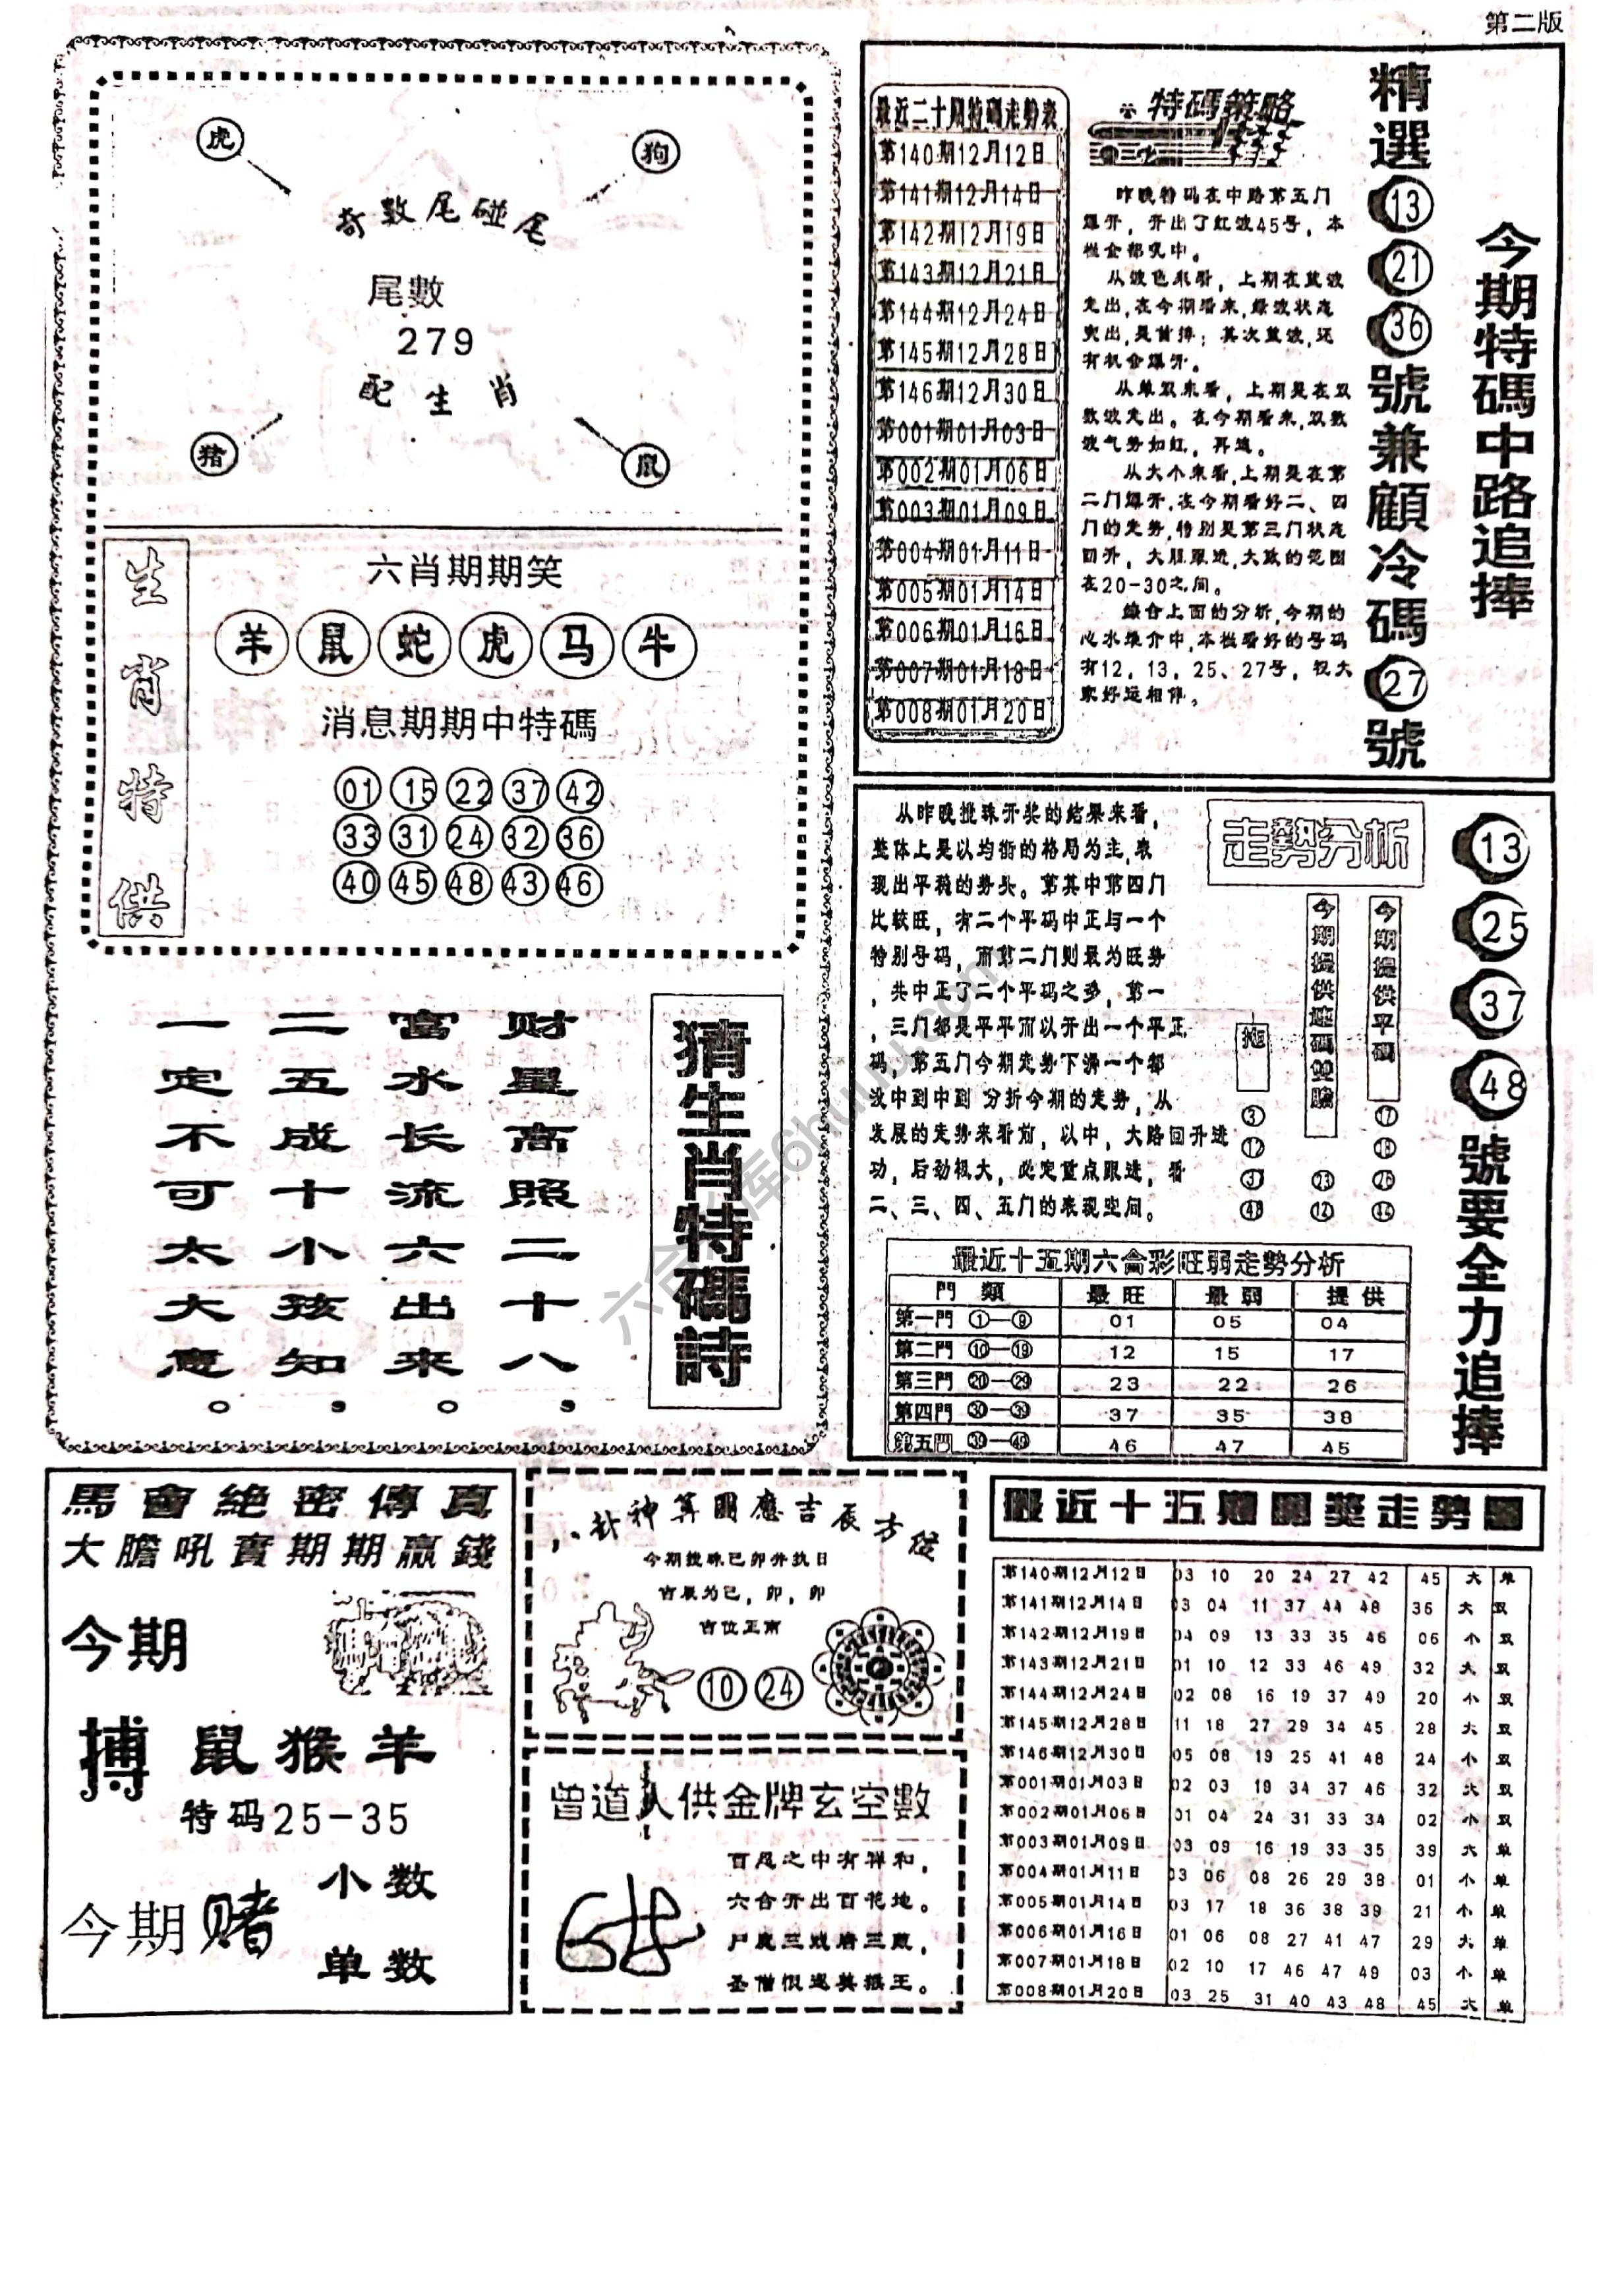 第二版
虎
狗
奇数尾碰尾
尾數
279
配生肖
猪
鼠
生肖特供
六肖期期笑
羊 鼠 蛇 虎 马 牛
消息期期中特碼
01 15 22 37 42
33 31 24 32 36
40 45 48 43 46
猜生肖特碼詩
财星高照二十八，
富水长流六出来。
二五成十小孩知，
一定不可太大意。
今期特碼中路追捧
精選13 21 36號兼顧冷碼27號
特碼策略
最近二十期特碼走势表
第140期12月12日
第141期12月14日
第142期12月19日
第143期12月21日
第144期12月24日
第145期12月28日
第146期12月30日
第001期01月03日
第002期01月06日
第003期01月09日
第004期01月11日
第005期01月14日
第006期01月16日
第007期01月18日
第008期01月20日
昨晚特码在中路第五门
爆开，开出了红波45号，本
栏全部
中。
从波色来看，上期在蓝波
走出，在今期看来，绿波状态
突出，是首捧；其次蓝波，还
有机会爆开。
从单双来看，上期是在双
数波走出。在今期看来，双数
波气势如红，再追。
从大小来看，上期是在第
二门爆开，在今期看好二、四
门的走势，特别是第三门状态
回升，大胆跟进，大致的范围
在20-30之间。
综合上面的分析，今期的
心水推介中，本栏看好的号码
有12，13，25、27号，祝大
家好运相伴。
13 25 37 48號要全力追捧
走勢分析
从昨晚搅珠开奖的结果来看，
整体上是以均衡的格局为主，表
现出平稳的势头。第其中第四门
比较旺，有二个平码中正与一个
特别号码，而第二门则最为旺势
，共中正了二个平码之多，第一
、三门都是平平而以开出一个平正
码，第五门今期走势下滑一个都
没中到中到 分折今期的走势，从
发展的走势来看前，以中，大路回升进
功，后劲极大，必定重点跟进，看
二、三、四、五门的表现空间。
今期提供平碼
17
18
26
44
今期提供連碼雙膽
23
12
拖
3
12
37
48
最近十五期六會彩旺弱走勢分析
門類 最旺 最弱 提供
第一門 ①—⑨ 01 05 04
第二門 ⑩—⑲ 12 15 17
第三門 ⑳—㉙ 23 22 26
第四門 ㉚—㊴ 37 35 38
第五門 ㊴—㊾ 46 47 45
馬會絶密傳真
大膽吼實期期贏錢
今期
搏 鼠猴羊
特码25-35
今期赌
小数
单数
今期搅珠己卯并执日
吉辰为己，卯，卯
吉位正南
10 24
曾道人供金牌玄空數
百忍之中有祥和，
六合开出百花地。
尸魔三戏唐三藏，
圣僧恨逐美猴王。
最近十五期開奬走势圖
第140期12月12日 03 10 20 24 27 42 45 大 单
第141期12月14日 03 04 11 37 44 48 36 大 双
第142期12月19日 04 09 13 33 35 46 06 小 双
第143期12月21日 01 10 12 33 46 49 32 大 双
第144期12月24日 02 08 16 19 37 49 20 小 双
第145期12月28日 11 18 27 29 34 45 28 大 双
第146期12月30日 05 08 19 25 41 48 24 小 双
第001期01月03日 02 03 19 34 37 46 32 大 双
第002期01月06日 01 04 24 31 33 34 02 小 双
第003期01月09日 03 09 16 19 33 35 39 大 单
第004期01月11日 03 06 08 26 29 38 01 小 单
第005期01月14日 03 17 18 36 38 39 21 小 单
第006期01月16日 01 06 08 27 41 47 29 大 单
第007期01月18日 02 10 17 46 47 49 03 小 单
第008期01月20日 03 25 31 40 43 48 45 大 单